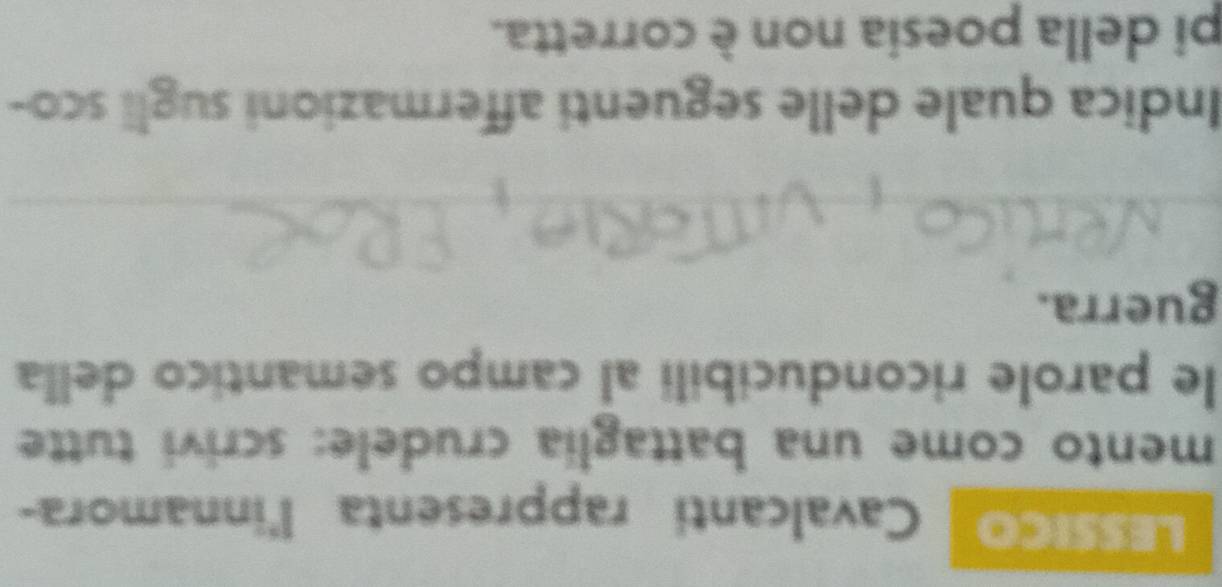 LESSICO Cavalcanti rappresenta l'innamora-
mento come una battaglia crudele: scrivi tutte
le parole riconducibili al campo semantico della
guerra.
NEMICO, VITTORIA, EROE
Indica quale delle seguenti affermazioni sugli sco-
pi della poesia non è corretta.